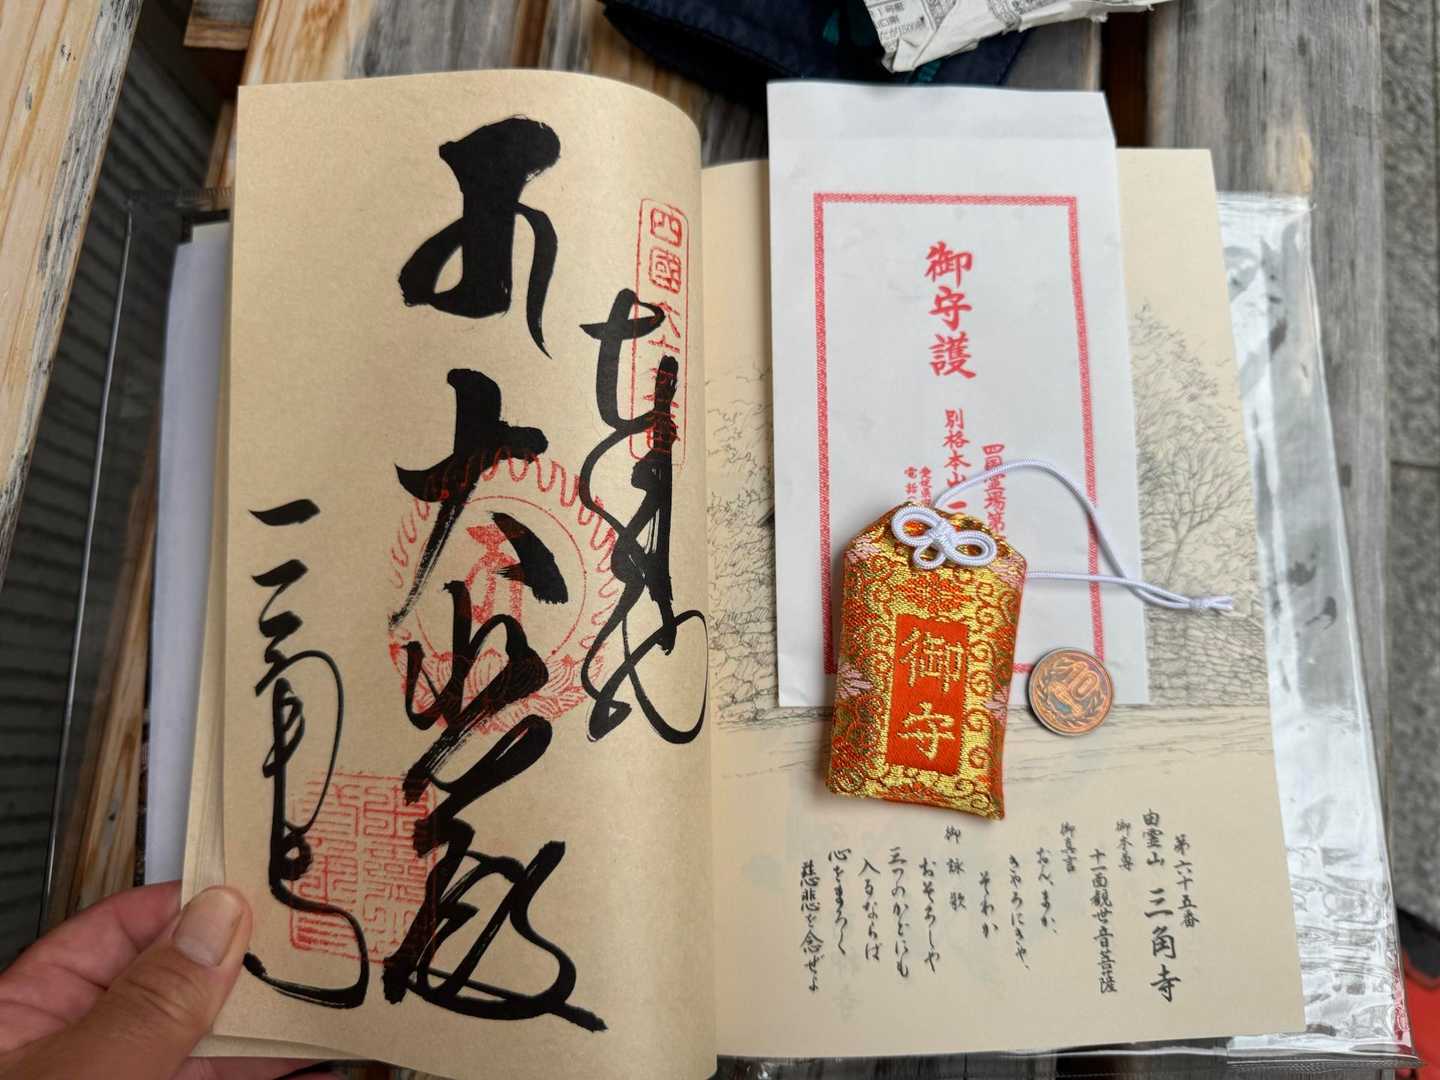 奉納
大悲殿
三角寺
四國六十五番
御守護
四国霊場第
別格本山三
電話
御守
10
第六十五番
由霊山 三角寺
御本尊
十一面観世音菩薩
御真言
おん、まか、
きゃろにきゃ、
そわか
御詠歌
おそろしや
三つのかどにも
入るならば
心をまろく
慈悲を念ぜよ